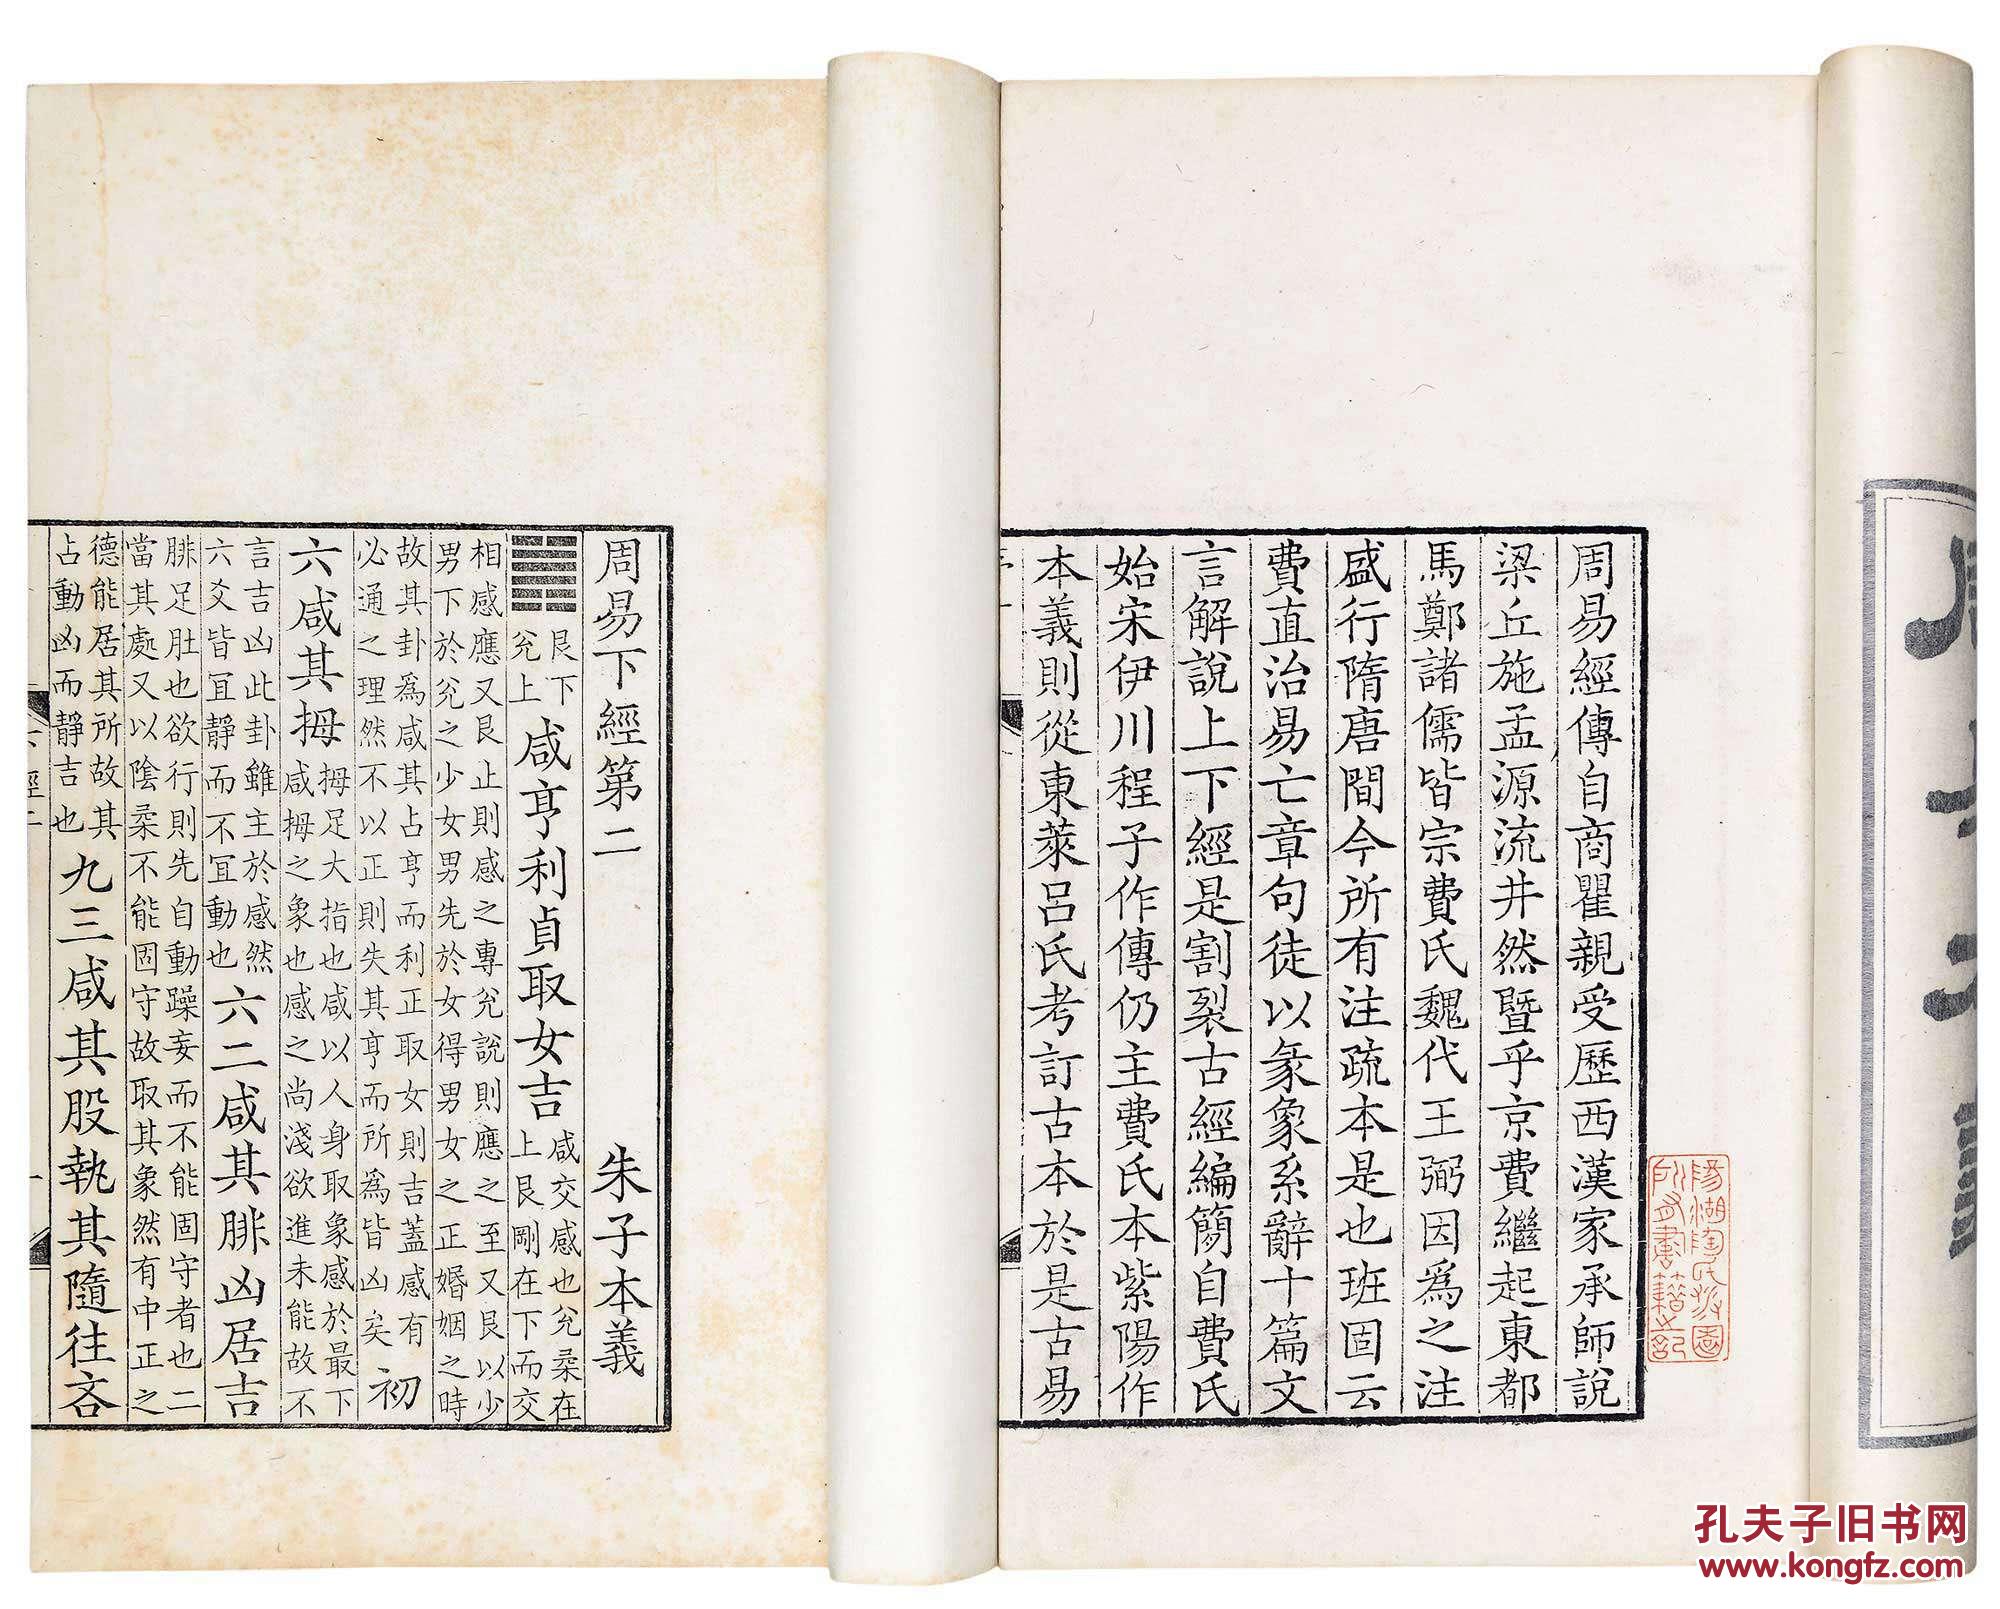 周易經傳自商瞿親受歷西漢家承師說
梁丘施孟源流井然暨乎京費繼起東都
馬鄭諸儒皆宗費氏魏代王弼因爲之注
盛行隋唐間今所有注疏本是也班固云
費直治易亡章句徒以彖象系辭十篇文
言解說上下經是割裂古經編簡自費氏
始宋伊川程子作傳仍主費氏本紫陽作
本義則從東萊呂氏考訂古本於是古易
陽湖陶氏涉園
所有書籍之記
周易下經第二 朱子本義
艮下
兌上
咸亨利貞取女吉
咸交感也兌柔在
上艮剛在下而交
相感應又艮止則感之專兌說則應之至又艮以少
男下於兌之少女男先於女得男女之正婚姻之時
故其卦爲咸其占亨而利正取女則吉蓋感有
必通之理然不以正則失其亨而所爲皆凶矣
初
六咸其拇
拇足大指也咸以人身取象感於最下
咸拇之象也感之尚淺欲進未能故不
言吉凶此卦雖主於感然
六爻皆冝靜而不冝動也
六二咸其腓凶居吉
腓足肚也欲行則先自動躁妄而不能固守者也二
當其處又以隂柔不能固守故取其象然有中正之
德能居其所故其
占動凶而靜吉也
九三咸其股執其隨往吝
孔夫子旧书网
www.kongfz.com